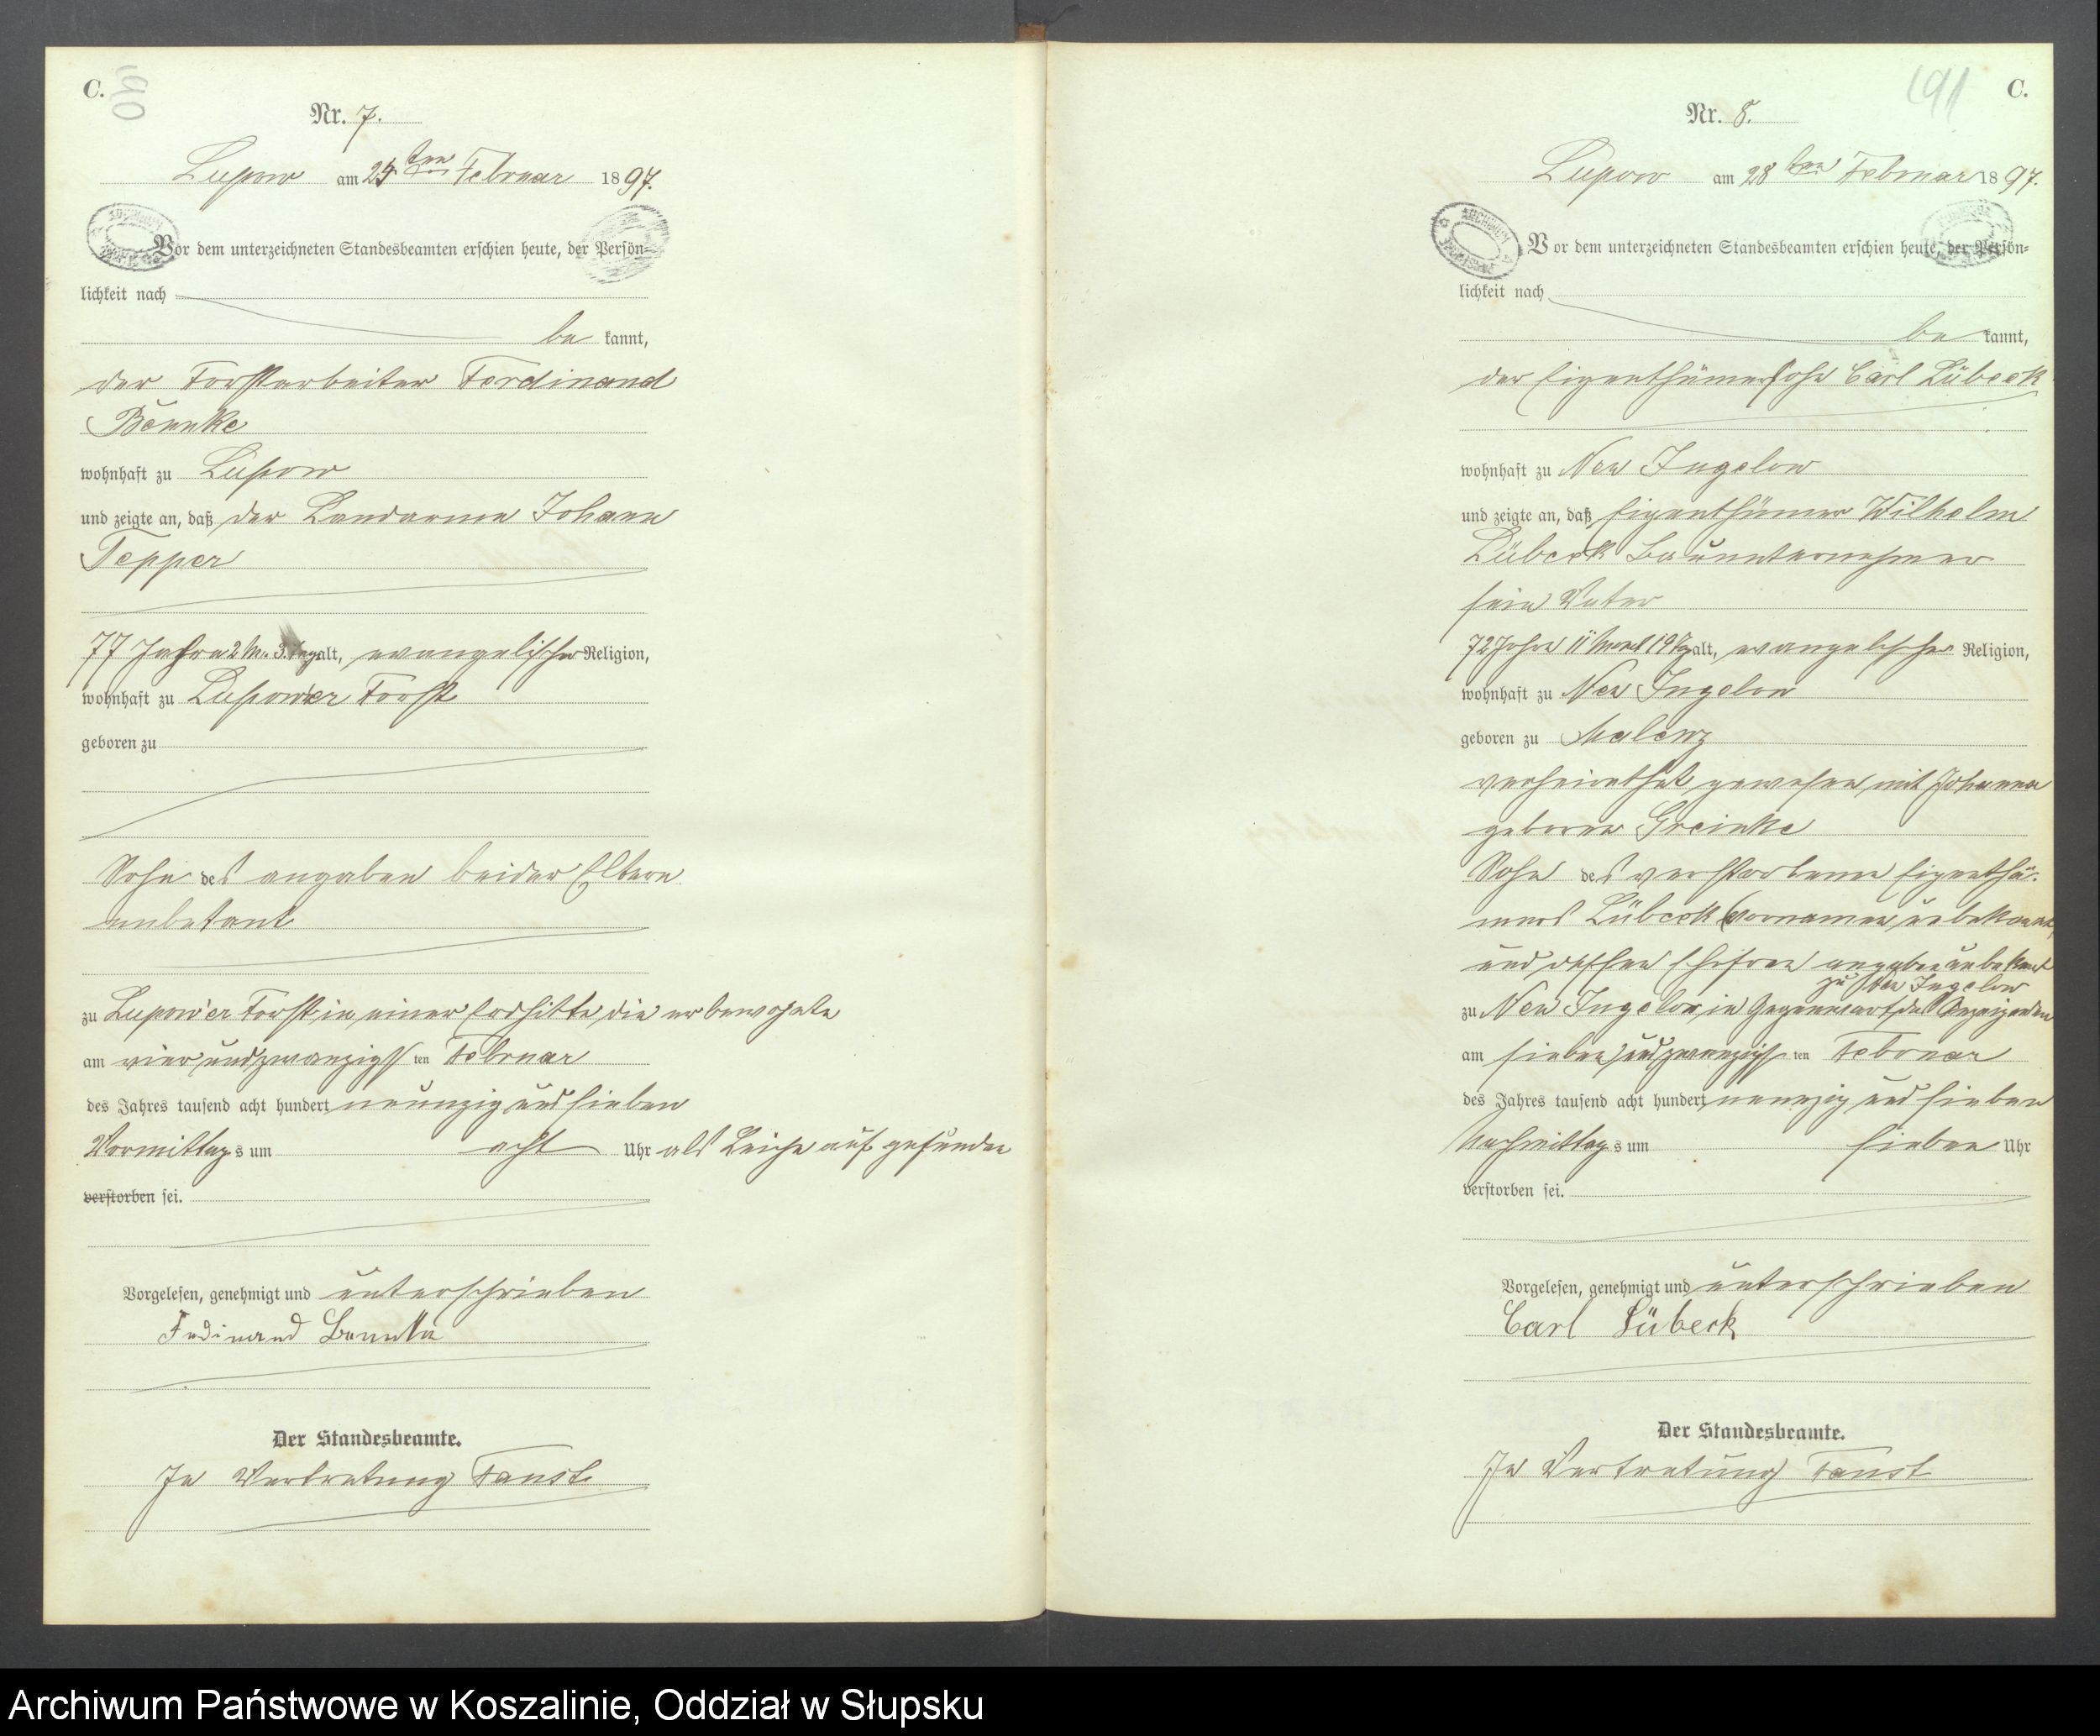 C.
Nr. 7.
Lupow am 24ten Februar 1897.
Vor dem unterzeichneten Standesbeamten erschien heute, der Persön-
lichkeit nach
be kannt,
der Forstarbeiter Ferdinand
wohnhaft zu Lupow
und zeigte an, daß der Landarme Johann
Tepper
77 Jahre 2 M. 3. Tage alt, evangelischer Religion,
wohnhaft zu Lupow'er Forst
geboren zu
Sohn des angaben beider Eltern
unbekant
zu Lupow'er Forst in einer Erdhütte die er bewohnte
am vier und zwanzigsten Februar
des Jahres tausend acht hundert neunzig und sieben
Vormittags um acht Uhr als Leiche aufgefunden
verstorben sei.
Vorgelesen, genehmigt und unterschrieben
Der Standesbeamte.
In Vertretung Faust
191 C.
Nr. 8.
Lupow am 28ten Februar 1897.
Vor dem unterzeichneten Standesbeamten erschien heute, der Persön-
lichkeit nach
be kannt,
der Eigenthümersohn Carl Lübeck
wohnhaft zu Neu Jugelow
und zeigte an, daß Eigenthümer Wilhelm
Lübeck Bauunternehmer
sein Vater
72 Jahre 11 Monat 19 Tg alt, evangelischer Religion,
wohnhaft zu Neu Jugelow
geboren zu Malenz
verheirathet gewesen mit Johanna
geborne Greinke
Sohn des verstorbenen Eigenthü-
mers Lübeck (vornamen unbekannt)
und dessen Ehefrau angaben unbekant
zu Neu Jugelow
zu Neu Jugelow in Gegenwart des Anzeigenden
am sieben und zwanzigsten Februar
des Jahres tausend acht hundert neunzig und sieben
Nachmittags um sieben Uhr
verstorben sei.
Vorgelesen, genehmigt und unterschrieben
Carl Lübeck
Der Standesbeamte.
In Vertretung Faust
Archiwum Państwowe w Koszalinie, Oddział w Słupsku